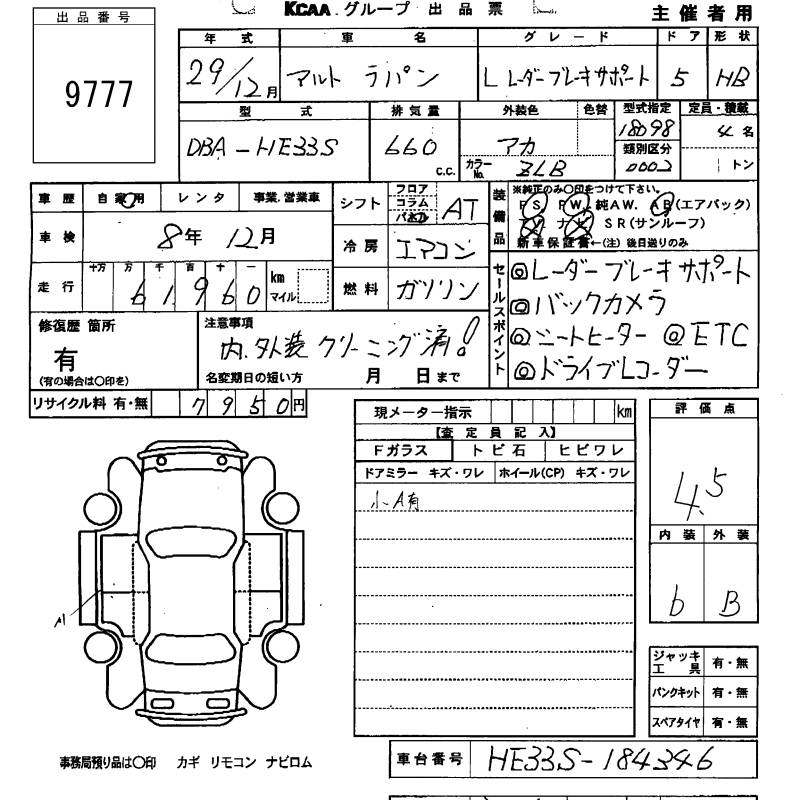 KCAA.グループ 出品票
主催者用
出品番号
9777
年式 車名 グレード ドア 形状
29/12月 アルト ラパン L レーダーブレーキサポート 5 HB
型式 排気量 外装色 色替 型式指定 定員・積載
DBA-HE33S 660 c.c. アカ 18098 4名
類別区分
カラーNo. ZLB 0002 トン
車歴 自家用 レンタ 事業.営業車
車検 8年 12月
走行 十万 万 千 百 十 一 km マイル
61960
シフト フロア コラム AT
冷房 エアコン
燃料 ガソリン
装備品
※純正のみ〇印をつけて下さい。
PS PW 純AW. AB(エアバック)
TV ナビ SR(サンルーフ)
新車保証書←(注)後日送りのみ
セールスポイント
◎レーダーブレーキサポート
◎バックカメラ
◎シートヒーター ◎ETC
◎ドライブレコーダー
修復歴 箇所
有
(有の場合は〇印を)
注意事項
内.外装クリーニング済!
名変期日の短い方 月 日まで
リサイクル料 有・無 7950円
現メーター指示 km
【査定員記入】
Fガラス トビ石 ヒビワレ
ドアミラー キズ・ワレ ホイール(CP) キズ・ワレ
小A有
評価点
4.5
内装 外装
b B
A1
ジャッキ工具 有・無
パンクキット 有・無
スペアタイヤ 有・無
事務局預り品は〇印 カギ リモコン ナビロム
車台番号 HE33S-184346